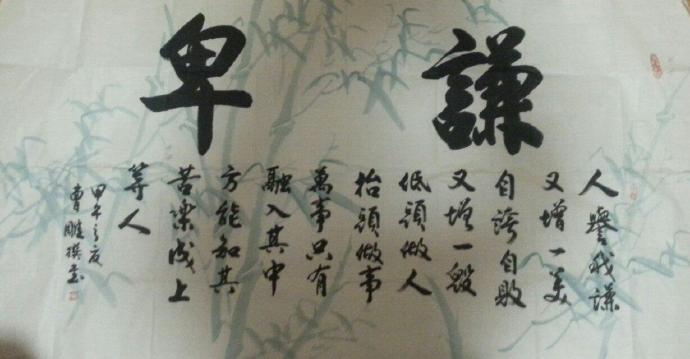 謙卑
人譽我謙
又增一美
自誇自敗
又增一毀
低頭做人
抬頭做事
萬事只有
融入其中
方能知其
苦樂成上
等人
甲午之夏
曹雕撰書